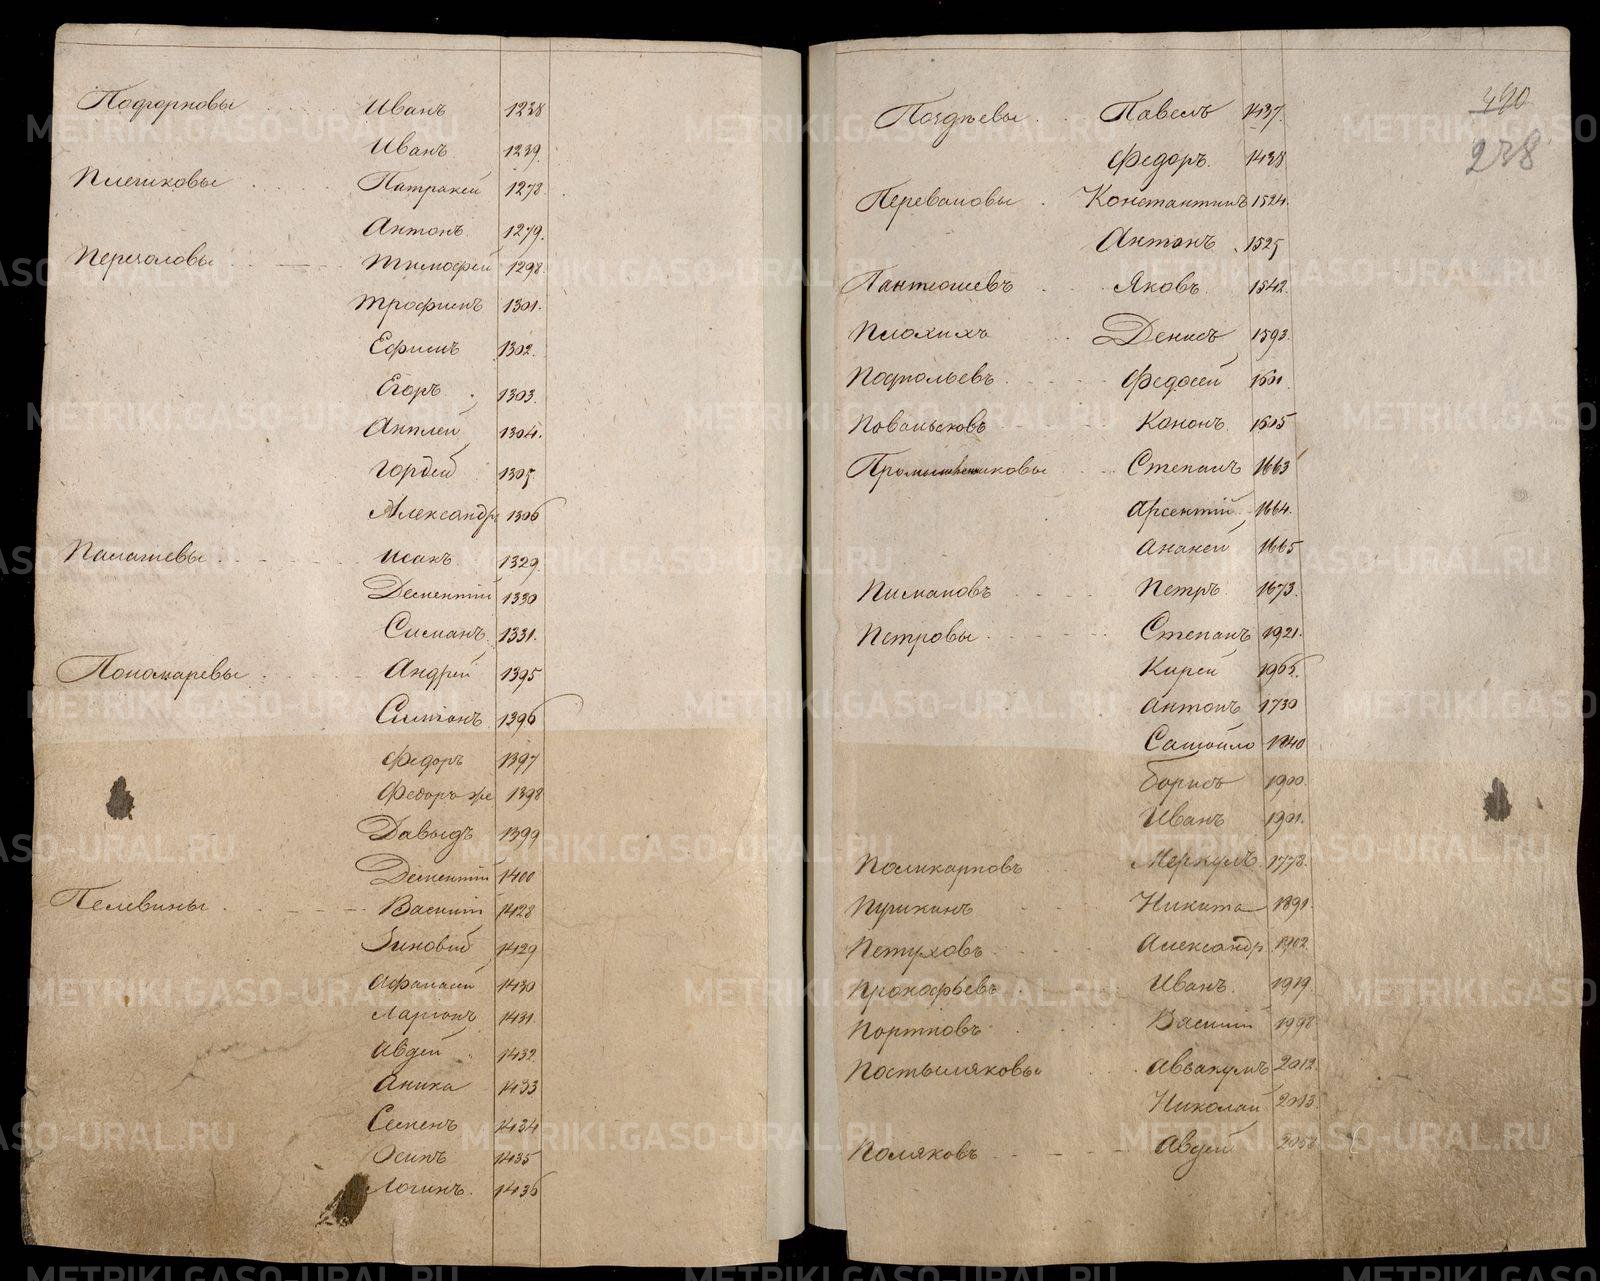 Подгорновы Иванъ 1238
Иванъ 1239
Плешковы Патракей 1278
Антонъ 1279.
Перечоловы Тимофей 1298
Трофимъ 1301.
Ефимъ 1302.
Егоръ 1303.
Анплей 1304.
Гордей 1305.
Александръ 1306
Палашевы Исакъ 1329.
Дементий 1330
Симанъ 1331.
Пономаревы Андрей 1395
Симионъ 1396
Федоръ 1397
Федоръ же 1398
Давыдъ 1399
Дементий 1400
Пелевины Василий 1428
Зиновий 1429
Афанасий 1430
Ларионъ 1431
Авдей 1432
Аника 1433
Семенъ 1434
Осипъ 1435
Логинъ 1436
490
238
Поздѣевы Павелъ 1437.
Федоръ 1438
Переваловы Константинъ 1524.
Антонъ 1525
Пантюшевъ Яковъ 1542.
Плохихъ Денисъ 1593.
Федосей 1601
Кононъ 1605
Промышленниковы Степанъ 1663
Арсентий 1664.
Ананей 1665
Пимановъ Петръ 1673.
Петровы Степанъ 1921.
Кирей
Антонъ 1730
Самойло 1840
Борисъ 1900.
Иванъ 1901.
Поликарповъ Меркулъ 1773.
Пушкинъ Никита 1891.
Петуховъ Александр 1902.
Прокофьевъ Иванъ 1919.
Портновъ Василий 1998
Постыляковы Аввакумъ 2012.
Николай 2013.
Поляковъ Авдей
METRIKI.GASO-URAL.RU